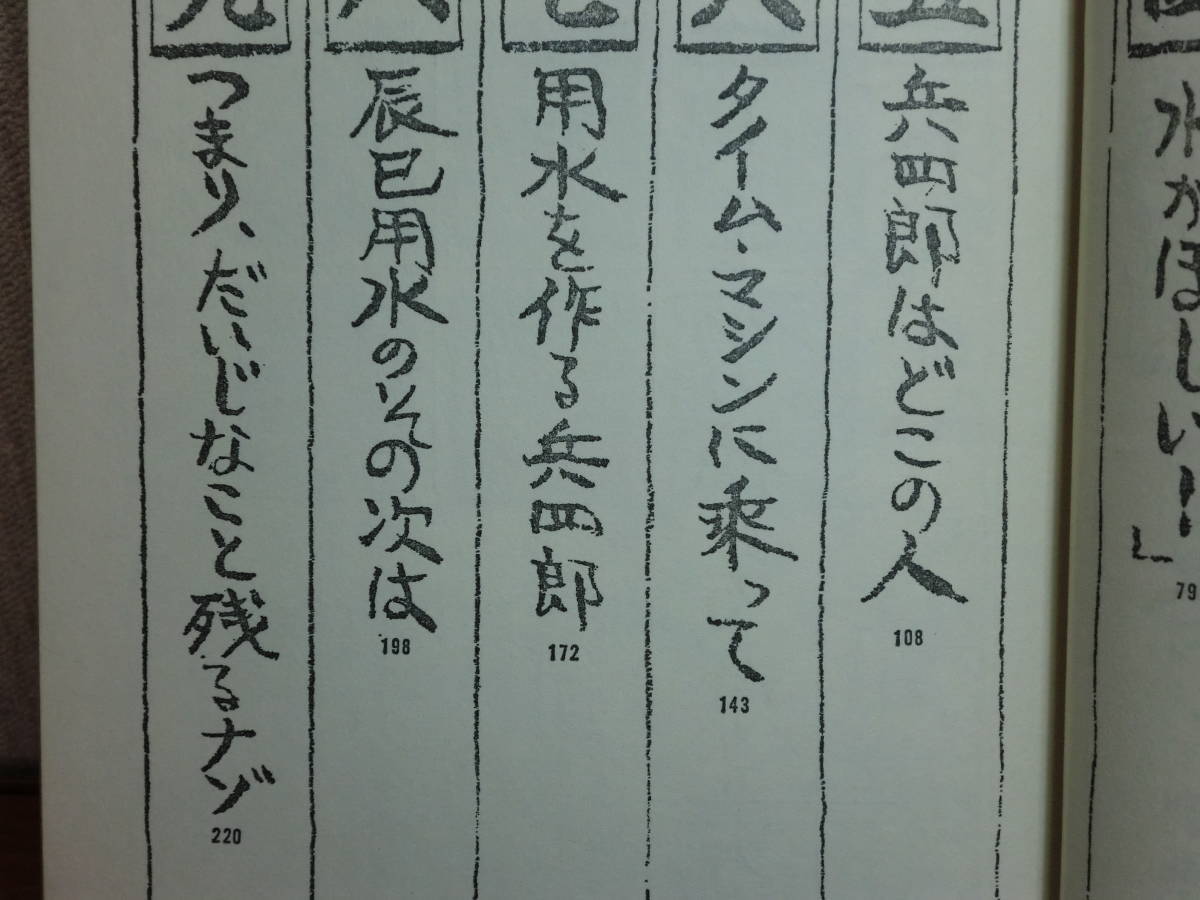 四
水がほしい！」
79
五
兵四郎はどこの人
108
六
タイム・マシンに乗って
143
七
用水を作る兵四郎
172
八
辰巳用水のその次は
198
九
つまり、だいじなこと残るナゾ
220